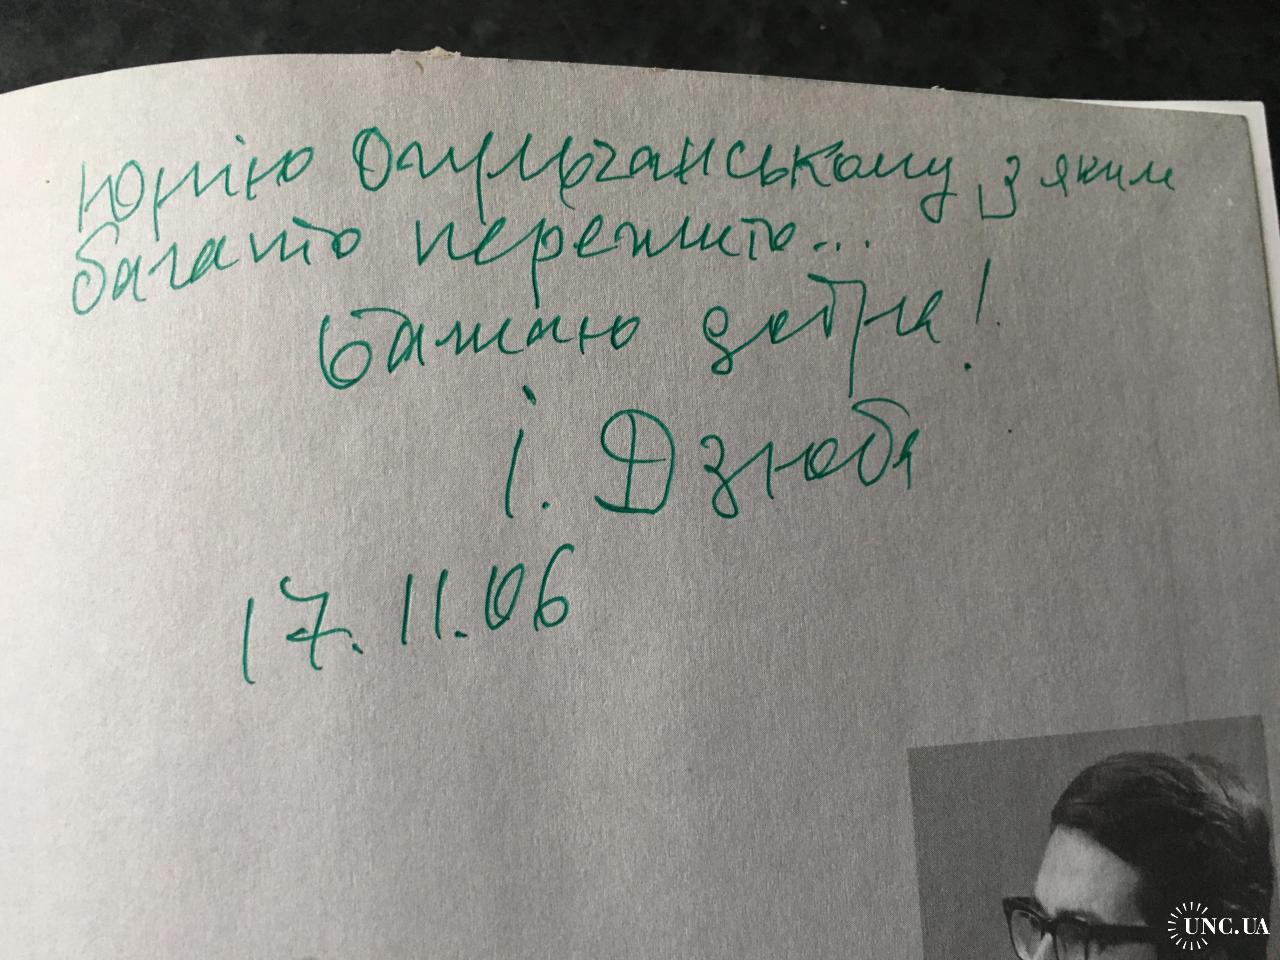 Юрію Огульчанському, з яким
багато пережито...
Бажаю добра!
І. Дзюба
17.11.06
UNC.UA